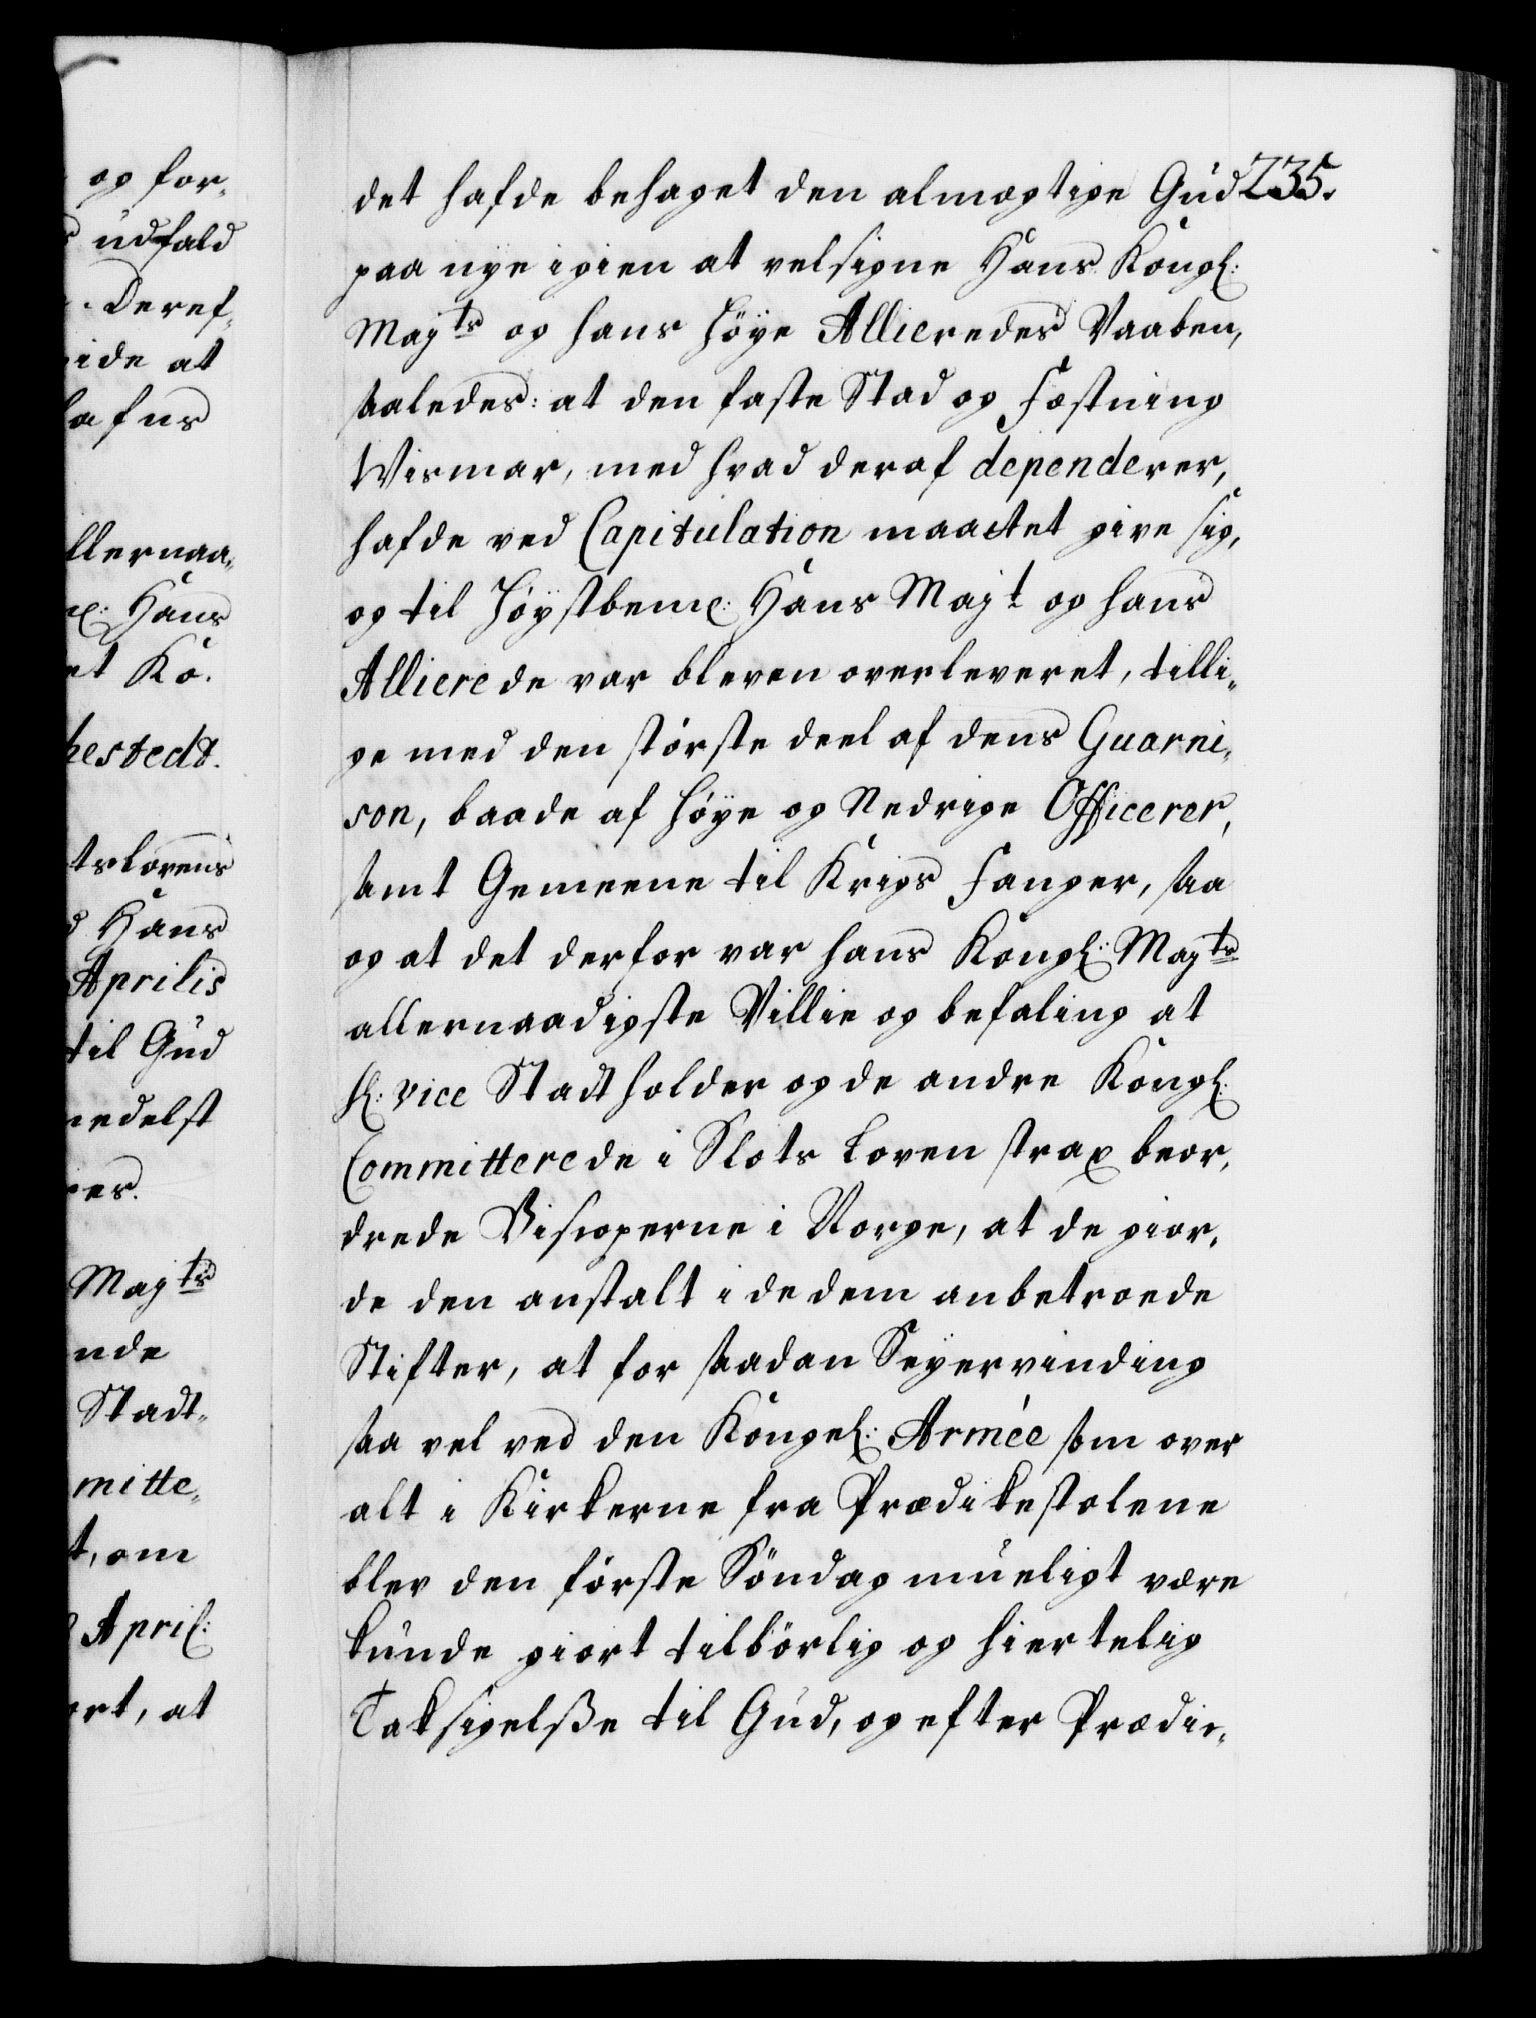 og for-
udfald
Deref-
ide at
afns
llernaa-
Hans
et Ko.
hestedt.
tsloven
Hans
Aprilis
til Gud
medelst
es.
Majts
nde
Stadt-
mitte-
t, om
April:
ort, at
235.
det hafde behaget den almægtige Gud
paa nye igien at velsigne Hans Kongl:
Majts og hans høye Allieredes Vaaben,
saaledes: at den faste Stad og Fæstning
Wismar, med hvad deraf dependerer,
hafde ved Capitulation maattet give sig,
og til Høystbemt: Hans Majt og hans
Allierede var bleven overleveret, tilli-
ge med den største deel af dens Guarni-
son, baade af høye og Nedrige Officerer,
samt Gemeene til Krigs Fanger, saa
og at det derfor var hans Kongl: Majts
allernaadigste Villie og befaling at
H: vice Stadtholder og de andre Kongl:
Committerede i Slots Loven strax beor-
drede Biscoperne i Norge, at de gior-
de den anstalt i de dem anbetroede
Stifter, at for saadan Seyervinding
saa vel ved den Kongel: Armée som over
alt i Kirkerne fra Prædikestolene
blev den første Søndag mueligt være
kunde giort tilbørlig og hiertelig
Taksigelsße til Gud, og efter Prædic-